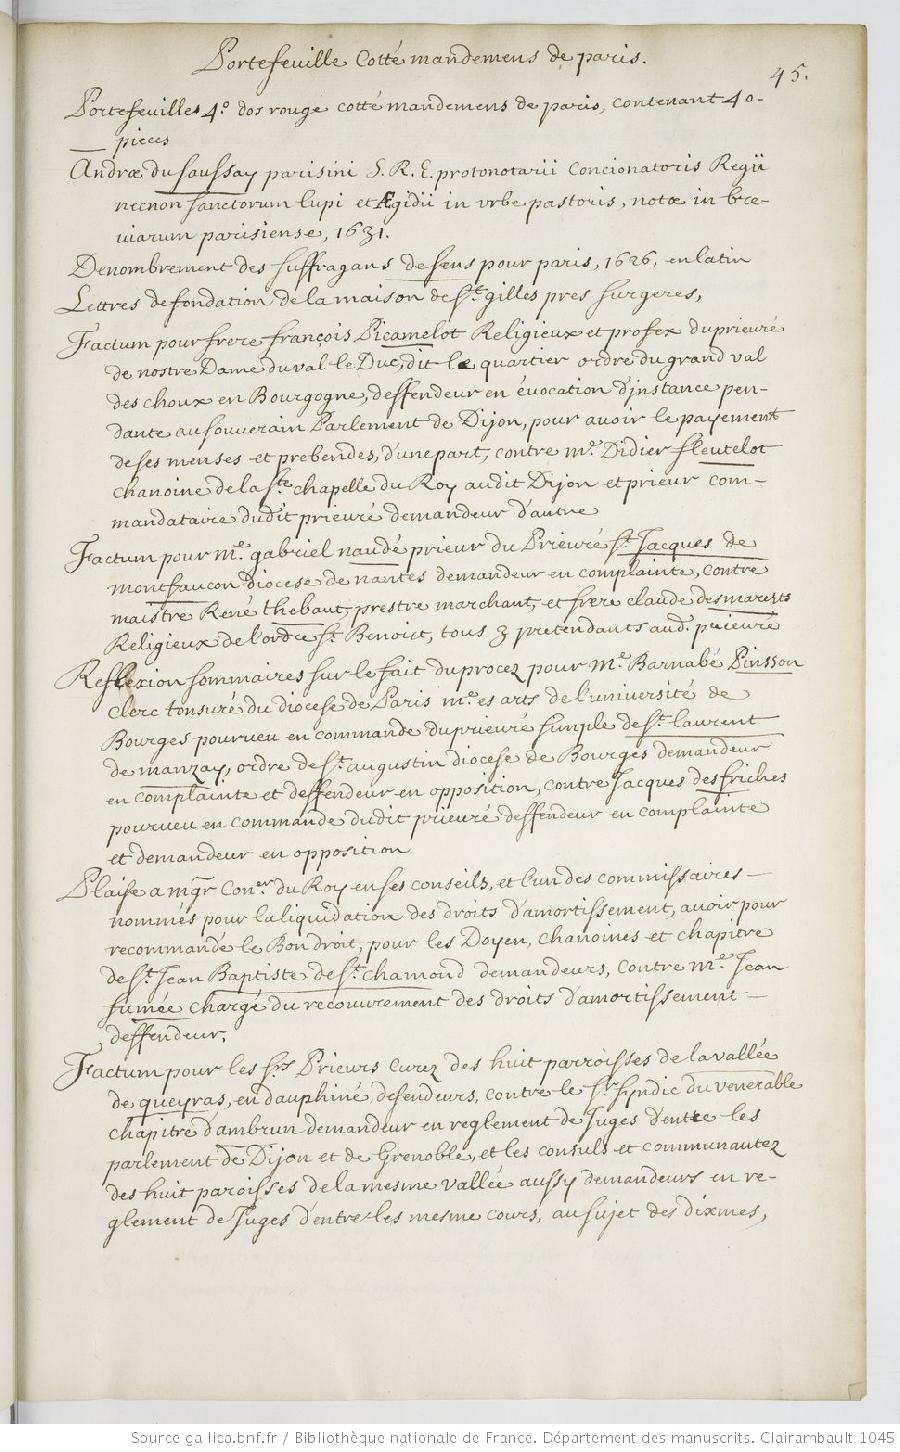 Portefeuille Cotté mandemens de paris.
45.
Portefeuilles 4.º dos rouge cotté mandemens de paris, contenant 40-
pieces
Andreæ du Saussay parisini S. R. E. protonotarii Concionatoris Regii
necnon sanctorum lupi et Ægidii in vrbe pastoris, notæ in bre-
viarum parisiense, 1631.
Denombrement des suffragans de sens pour paris, 1626, en latin
Lettres de fondation de la maison de St. gilles pres surgeres,
Factum pour frere françois Picamelot Religieux et profex du prieuré
de nostre Dame du val le Duc, dit le quartier ordre du grand val
des choux en Bourgogne, deffendeur en évocation d'instance pen-
dante au souverain Parlement de Dijon, pour avoir le payement
de ses menses et prebendes, d'une part, contre me. Didier fleutelot
chanoine de la Ste chapelle du Roy audit Dijon et prieur com-
mandataire dudit prieuré demandeur d'autre
Factum pour me. gabriel naudé prieur du Prieuré St. Jacques de
montfaucon diocese de nantes demandeur en complainte, contre
maistre René thebaut, prestre marchant, et frere claude desmarests
Religieux de l'ordre St. Benoict, tous 3 pretendants aud. prieuré
Reflexion sommaires sur le fait du procez pour Me. Barnabé Pinsson
clerc tonsuré du diocese de Paris me. es arts de l'université de
Bourges pourveu en commande du prieuré simple de St. laurent
de manzay, ordre de St. augustin diocese de Bourges demandeur
en complainte et deffendeur en opposition, contre Jacques desfriches
pourveu en commande dudit prieuré deffendeur en complainte
et demandeur en opposition
Plaise a mgr Coner du Roy en ses conseils, et l'un des commissaires -
nommés pour la liquidation des droits d'amortissement, avoir pour
recommandé le Bon droit, pour les Doyen, chanoines et chapitre
de St. Jean Baptiste de St. chamond demandeurs, contre me. Jean
fumée chargé du recouvrement des droits d'amortissement -
deffendeur,
Factum pour les srs Prieurs Curez des huit parroisses de la vallée
de queyras, en dauphiné, defendeurs, contre le sr syndic du venerable
chapitre d'ambrun demandeur en reglement de Juges d'entre les
parlement de Dijon et de Grenoble, et les consuls et communautez
des huit paroisses de la mesme vallée aussy demandeurs en re-
glement de Juges d'entre les mesme cours, au sujet des dixmes,
Source gallica.bnf.fr / Bibliothèque nationale de France. Département des manuscrits. Clairambault 1045